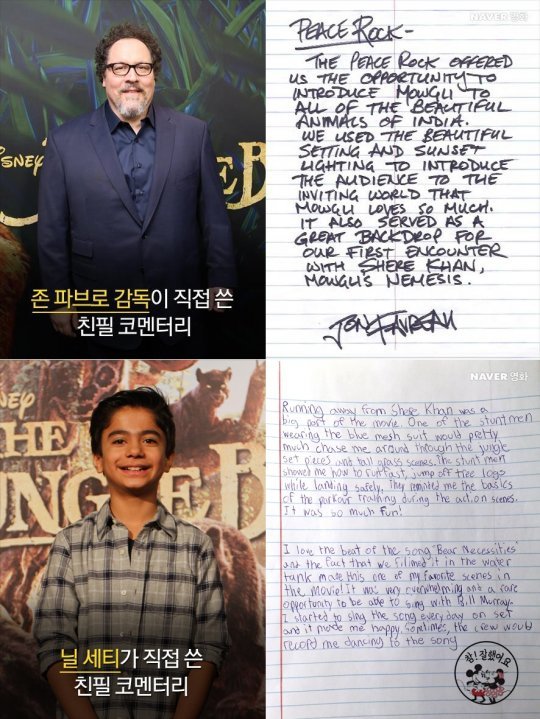 NAVER 영화
PEACE ROCK-
THE PEACE ROCK OFFERED
US THE OPPORTUNITY TO
INTRODUCE MOWGLI TO
ALL OF THE BEAUTIFUL
ANIMALS OF INDIA.
WE USED THE BEAUTIFUL
SETTING AND SUNSET
LIGHTING TO INTRODUCE
THE AUDIENCE TO THE
INVITING WORLD THAT
MOWGLI LOVES SO MUCH.
IT ALSO SERVED AS A
GREAT BACKDROP FOR
OUR FIRST ENCOUNTER
WITH SHERE KHAN,
MOWGLI'S NEMESIS.
JON FAVREAU
SNEY
존 파브로 감독이 직접 쓴
친필 코멘터리
NAVER 영화
Running away from Shere Khan was a
big part of the movie. One of the stuntmen
wearing the blue mesh suit would pretty
much chase me around through the jungle
set pieces and tall glass scenes. The stunt men
showed me how to run fast, jump off tree logs
while landing safely. They reminded me the basics
of the parkour training during the action scenes.
It was so much fun!
I love the beat of the song 'Bear Necessities'
and the fact that we filmed it in the water
tank made this one of my favorite scenes in
the movie! It was very overwhelming and a rare
opportunity to be able to sing with Bill Murray.
I started to sing the song every day on set
and it made me happy. Sometimes, the crew would
record me dancing to the song
참! 잘했어요
NEY
THE
UNGLE B
닐 세티가 직접 쓴
친필 코멘터리